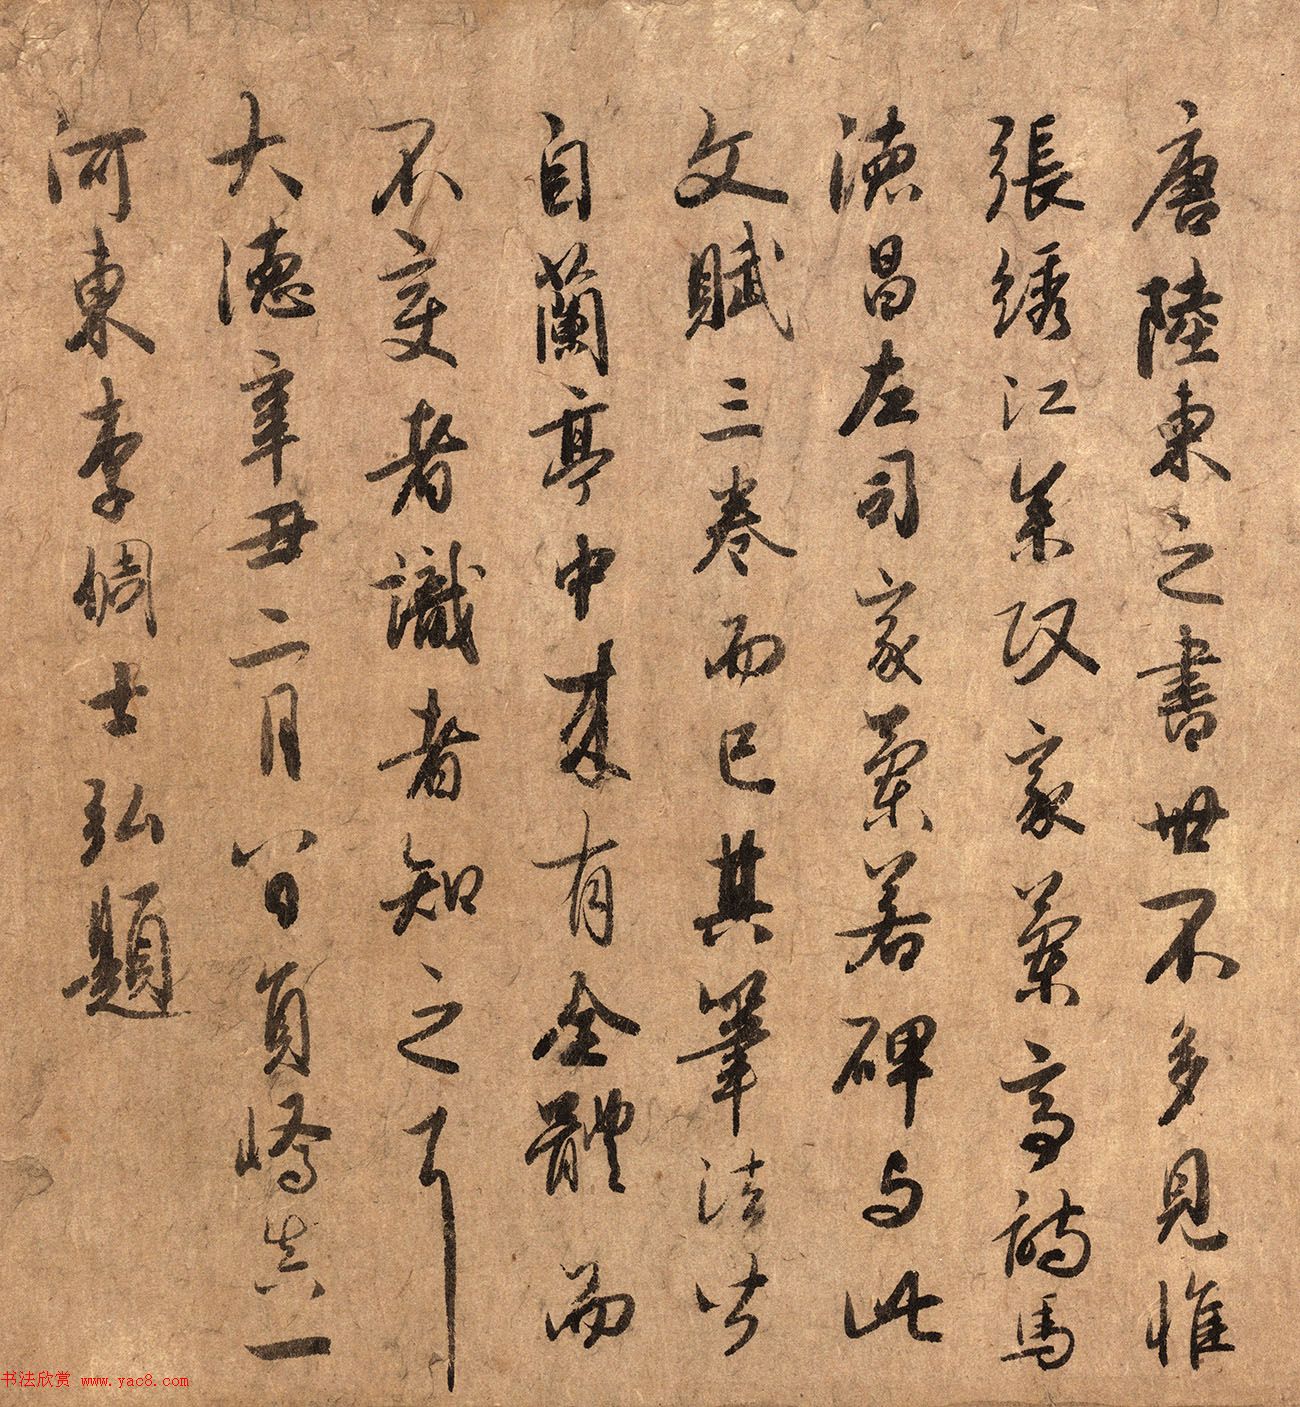 唐陸東之書世不多見惟
張綉江參政家蘭亭詩馬
德昌左司家蘭若碑与此
文賦三卷而已其筆法皆
自蘭亭中來有全體而
不变者識者知之耳
大德辛丑二月八日員嶠真一
河東李倜士弘題
书法欣赏 www.yac8.com